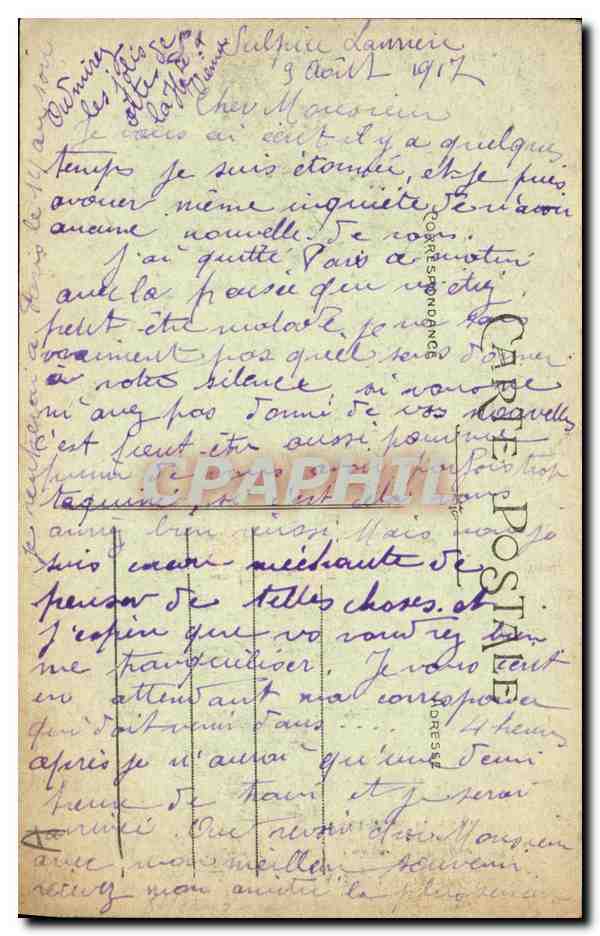 Admirez
les jolis
sites de
la
Sulpice Laurière
9 Août 1917
Cher Monsieur
Je vous ai écrit il y a quelques
temps je suis étonnée, et je puis
avouer même inquiète de n'avoir
aucune nouvelle de vous.
J'ai quitté Paris ce matin
avec la pensée que v étiez
peut être malade, je ne sais
vraiment pas quel sens donner
à votre silence si vous ne
m'avez pas donné de vos nouvelles
c'est peut-être aussi pour me
punir de vous avoir parfois trop
taquiné, si c'est cela vous
aurez bien réussi. Mais non je
suis encore méchante de
penser de telles choses et
j'espère que vs voudrez bien
me tranquiliser. Je vous écrit
en attendant ma correspondance
qui doit venir dans ..... 4 heures
après je n'aurai qu'une demi
heure de train et je serai
arrivée. Au revoir cher Monsieur
avec mon meilleur souvenir
recevez mon amitié la plus sincère
je rentrerai à Paris le 14 au soir
CORRESPONDANCE
CARTE POSTALE
ADRESSE
CPAPHIL